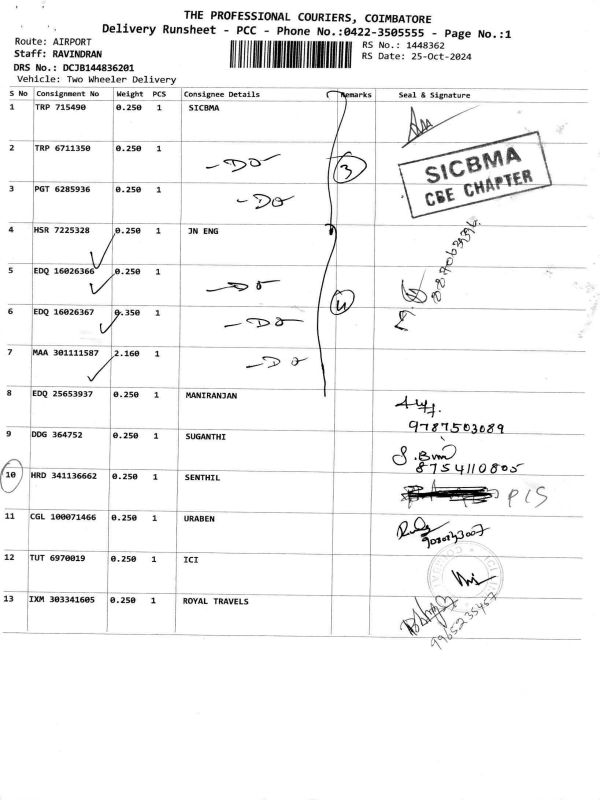 THE PROFESSIONAL COURIERS, COIMBATORE
Delivery Runsheet - PCC - Phone No.:0422-3505555 - Page No.:1
Route: AIRPORT
RS No.: 1448362
Staff: RAVINDRAN
RS Date: 25-Oct-2024
DRS No.: DCJB144836201
Vehicle: Two Wheeler Delivery
S No Consignment No Weight PCS Consignee Details Remarks Seal & Signature
1 TRP 715490 0.250 1 SICBMA
2 TRP 6711350 0.250 1 -DO 3 SICBMA
CBE CHAPTER
3 PGT 6285936 0.250 1 -DO
4 HSR 7225328 0.250 1 JN ENG
5 EDQ 16026366 0.250 1 -DO
6 EDQ 16026367 0.350 1 -DO 4
7 MAA 301111587 2.160 1 -DO
8 EDQ 25653937 0.250 1 MANIRANJAN
9787503089
9 DDG 364752 0.250 1 SUGANTHI
8754110805
10 HRD 341136662 0.250 1 SENTHIL
11 CGL 100071466 0.250 1 URABEN
12 TUT 6970019 0.250 1 ICI
13 IXM 303341605 0.250 1 ROYAL TRAVELS
9965235457